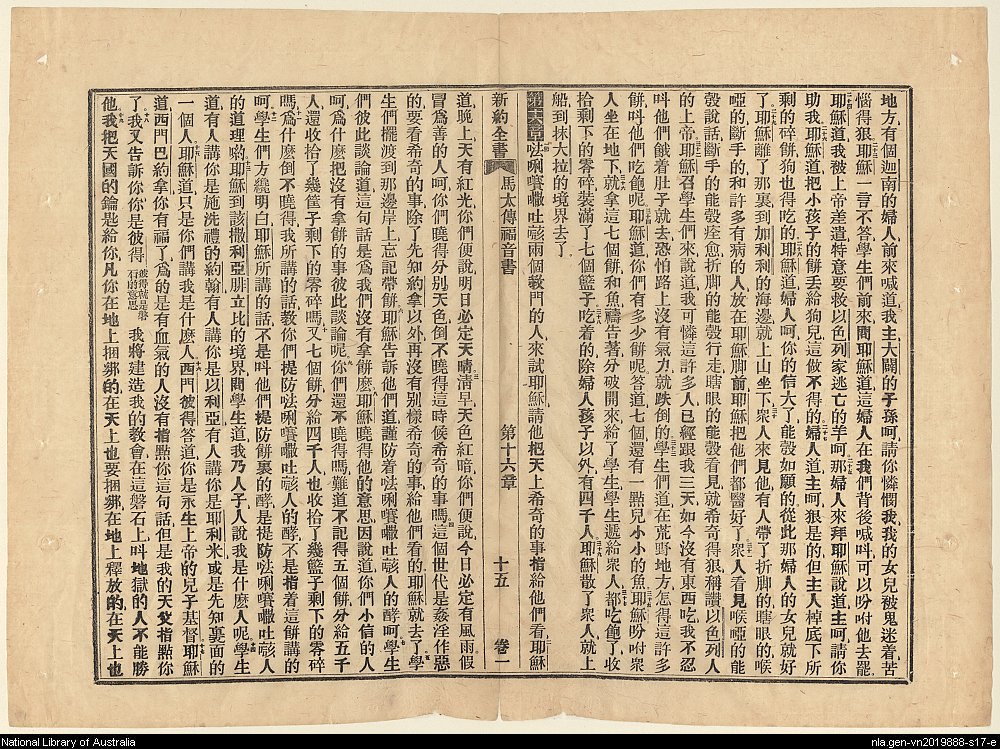 地方有個迦南的婦人前來喊道我主大闢的子孫呵請你憐憫我我的女兒被鬼迷着苦
惱得狠耶穌一言不答學生們前來問耶穌道這婦人在我們背後喊叫可以吩咐他去罷
耶穌道我被上帝差遣特意要救以色列家逃亡的羊呵那婦人來拜耶穌說道主呵請你
助我耶穌道把小孩子的餅丟給狗兒這做不得的婦人道主呵狠是的但主人棹底下所
剩的碎餅狗也得吃的耶穌道婦人呵你的信大了能彀如願的從此那婦人的女兒就好
了耶穌離了那裏到加利利的海邊就上山坐下衆人來見他有人帶了折脚的瞎眼的喉
啞的斷手的和許多有病的人放在耶穌脚前耶穌把他們都醫好了衆人看見喉啞的能
彀說話斷手的能彀痊愈折脚的能彀行走瞎眼的能彀看見就希奇得狠稱讚以色列人
的上帝耶穌召學生們來說道我可憐這許多人已經跟我三天如今沒有東西吃我不忍
叫他們餓着肚子就去恐怕路上沒有氣力就跌倒的學生們道在荒野地方怎得這許多
餅叫他們吃飽呢耶穌道你們有多少餅呢答道七個還有一點兒小小的魚耶穌吩咐衆
人坐在地下就拿這七個餅和魚禱告著分破開來給了學生學生遞給衆人都吃飽了收
拾剩下的零碎裝滿了七個籃子吃着的除婦人孩子以外有四千人耶穌散了衆人就上
船到抹大拉的境界去了
第十六章㳒唎賽嘥吐該兩個教門的人來試耶穌請他把天上希奇的事指給他們看耶穌
新約全書 馬太傳福音書 第十六章 十五 卷一
道晚上天有紅光你們便說明日必定天晴淸早天色紅暗你們便說今日必定有風雨假
冒爲善的人呵你們曉得分別天色倒不曉得這時候希奇的事嗎這個世代是姦淫作惡
的要看希奇的事除了先知約拿以外再沒有別樣希奇的事給他們看的耶穌就去了學
生們擺渡到那邊岸上忘記帶餅耶穌告訴他們道謹防着㳒唎賽嘥吐該人的酵呵學生
們彼此談論道這句話是爲我們沒有拿餅麽耶穌曉得他的意思因說道你們小信的人
呵爲什麽把沒有拿餅的事彼此談論呢你們還不曉得嗎難道不記得五個餅分給五千
人還收拾了幾筐子剩下的零碎嗎又七個餅分給四千人也收拾了幾籃子剩下的零碎
嗎爲什麽倒不曉得我所講的話教你們提防㳒唎賽嘥吐該人的酵不是指着這餅講的
呵學生們方纔明白耶穌所講的話不是叫他們提防餅裏的酵是提防㳒唎賽嘥吐該人
的道理喲耶穌到該撒利亞腓立比的境界問學生道我乃人子人說我是什麽人呢學生
道有人講你是施洗禮的約翰有人講你是以利亞有人講你是耶利米或是先知裏面的
一個人耶穌道只是你們講我是什麽人西門彼得答道你是永生上帝的兒子基督耶穌
道西門巴約拿你有福了爲的是有血氣的人沒有指點你這句話但是我的天父指點你
了我又告訴你你是彼得彼得就是磐石的意思我將建造我的教會在這磐石上叫地獄的人不能勝
他我把天國的鑰匙給你凡你在地上捆綁的在天上也要捆綁在地上釋放的在天上也
National Library of Australia
nla.gen-vn2019888-s17-e